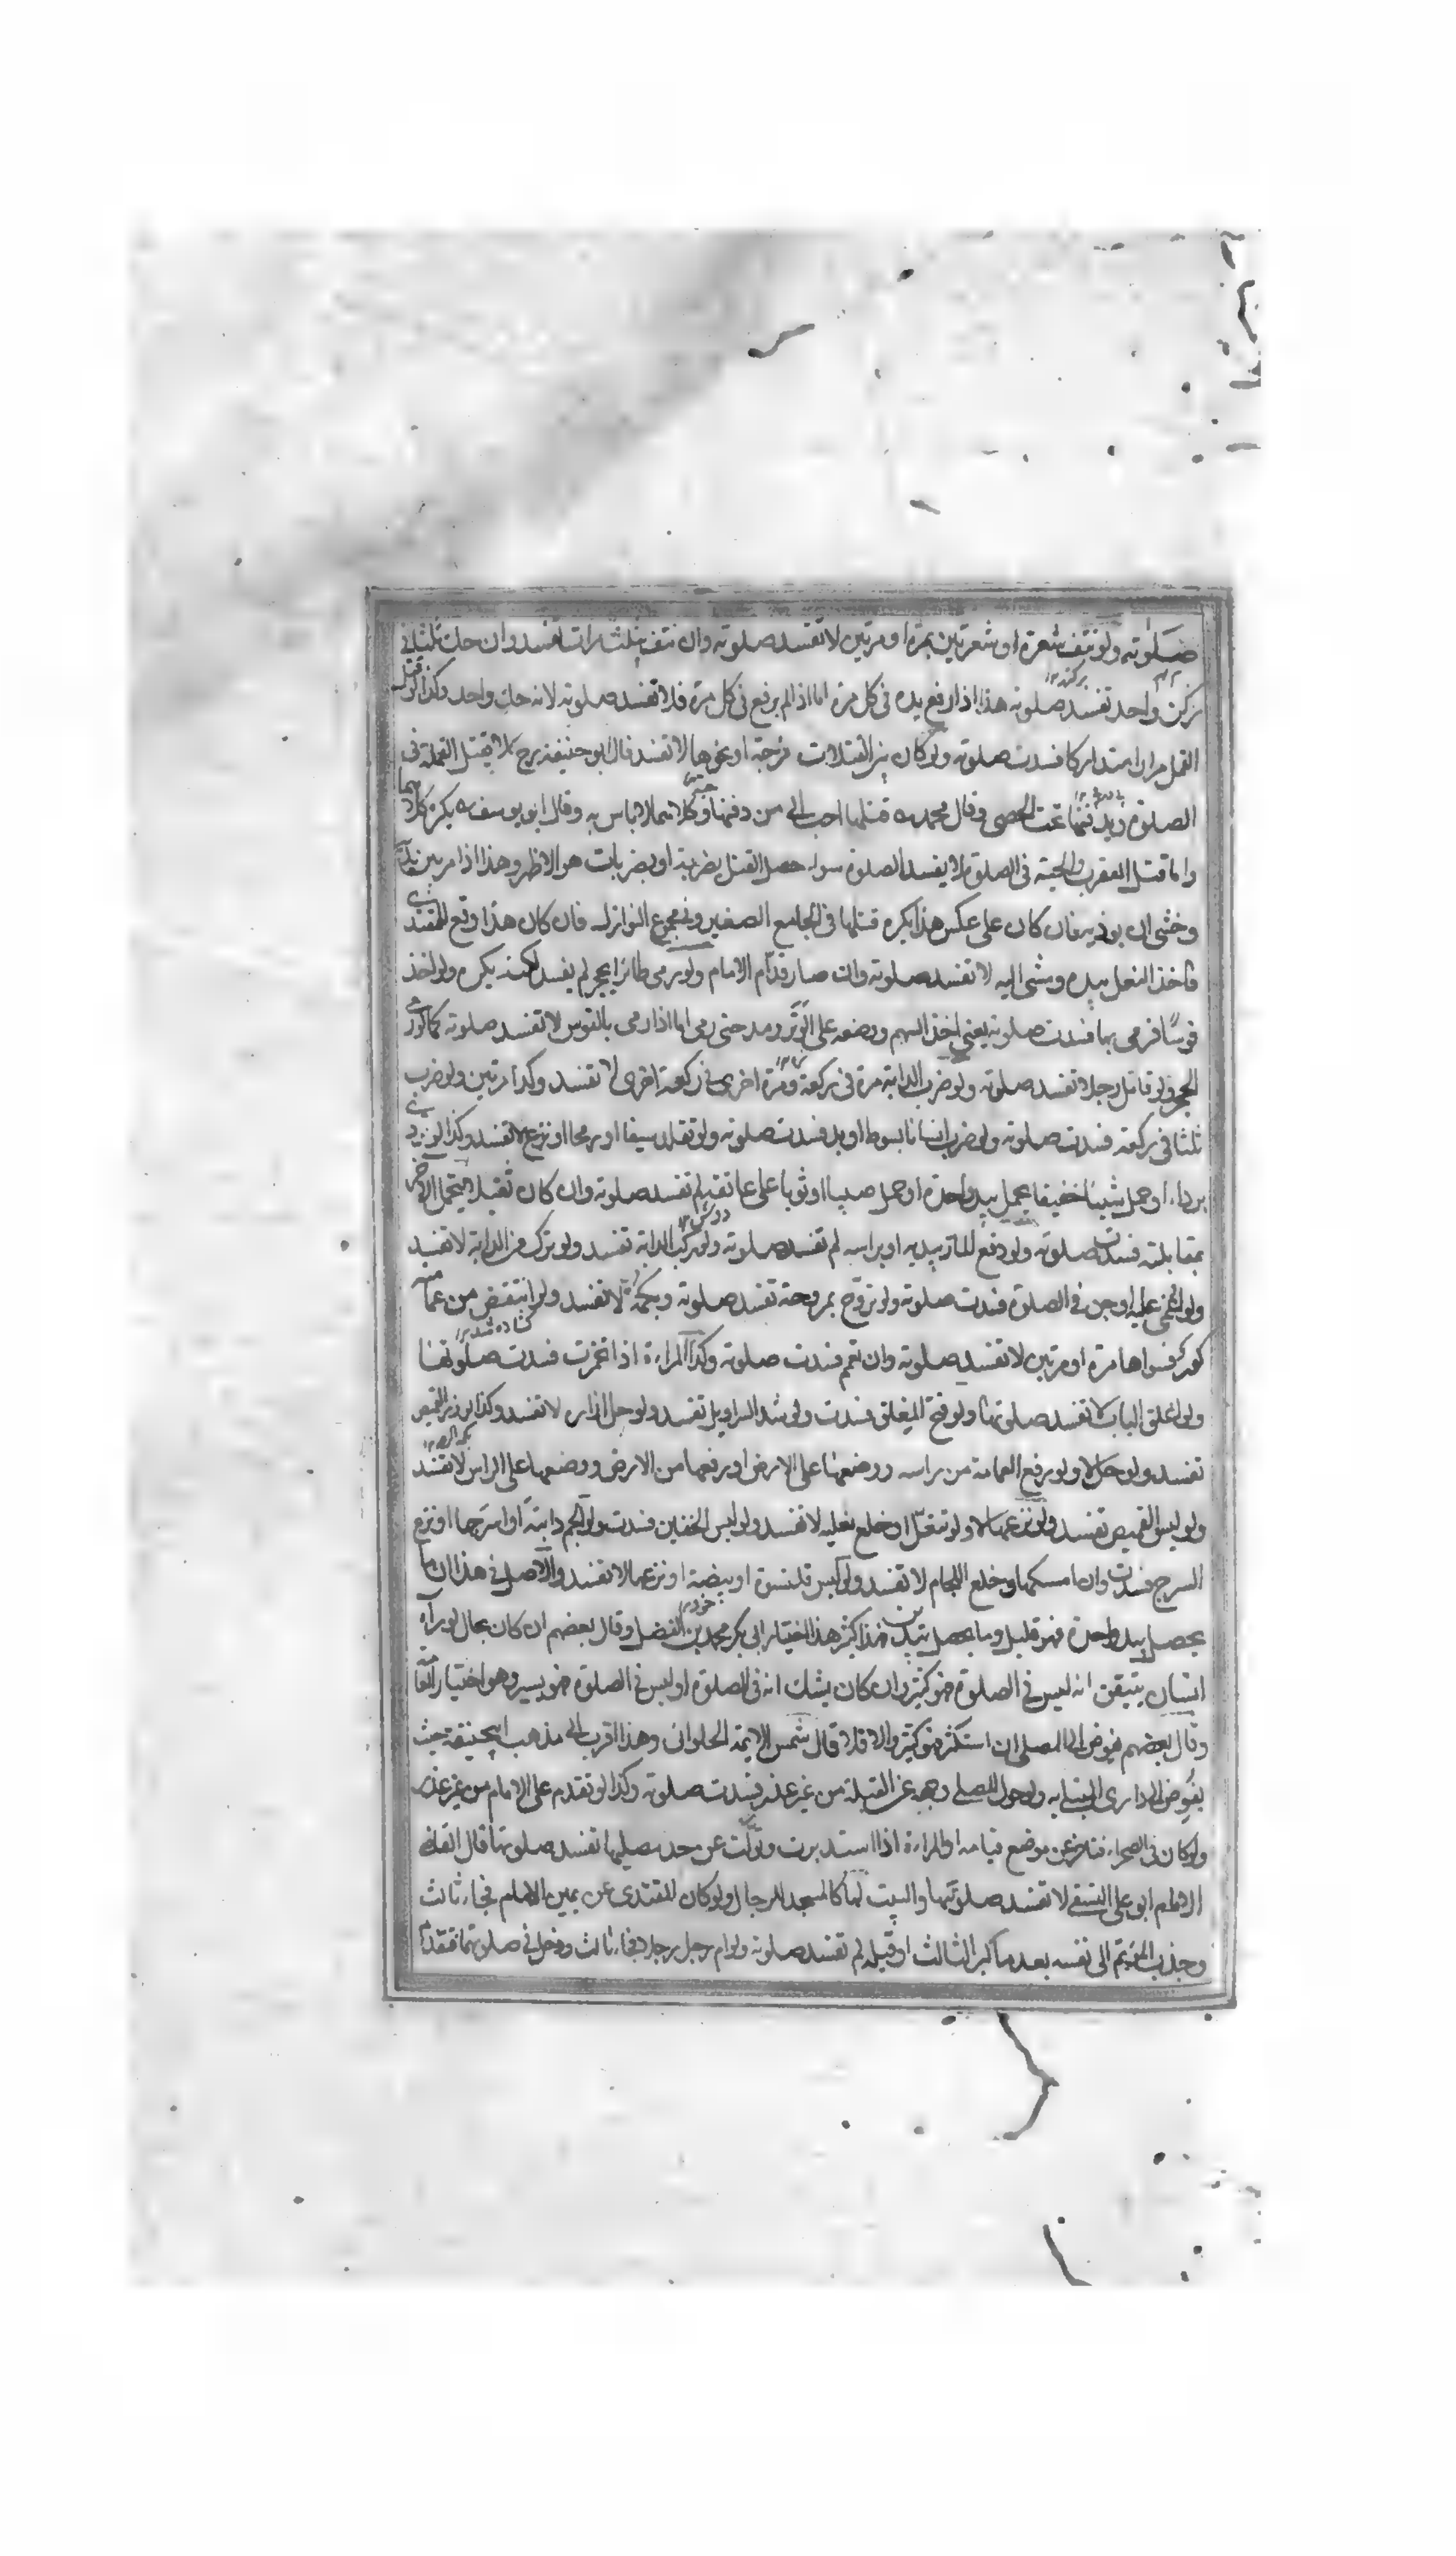 صلوته ولو نتف شعرة او شعرتين بمرة او مرتين لا تفسد صلوته وان نتف ثلث مرات تفسد وان حك ثلثا في
ركن واحد تفسد صلوته هذا اذا رفع يده في كل مرة اما اذا لم يرفع في كل مرة فلا تفسد صلوته لانه حك واحد وكذا لو قتل
القمل مرارا متداركا فسدت صلوته ولو كان بين القتلات فرجة او نحوها لا تفسد قال ابو حنيفة رح لا يقتل القملة في
الصلوة ويدفنها تحت الحصى وقال محمد ره قتلها احب الي من دفنها وكلاهما لا باس به وقال ابو يوسف ره يكره كلاهما
واما قتل العقرب والحية في الصلوة لا يفسد الصلوة سواء حصل القتل بضربة او بضربات هو الاظهر وهذا اذا مر بين يديه
وخشي ان يوذيه فان كان على عكس هذا يكره قتلها في الجامع الصغير وفي مجموع النوازل فان كان هذا وقع للمقتدي
فاخذ النعل بيده ومشى اليه لا تفسد صلوته وان صار قدام الامام ولو رمى طائرا بحجر لم يفسد لكنه يكره ولو اخذ
قوسا فرمى بها فسدت صلوته يعني اخذ السهم ووضعه على الوتر ومد حتى رمى اما اذا رمى بالقوس لا تفسد صلوته كما لو رمى
الحجر ولو قاتل رجلا تفسد صلوته ولو ضرب الدابة مرة في ركعة ومرة اخرى في ركعة اخرى لا تفسد وكذا مرتين ولو ضرب
ثلثا في ركعة فسدت صلوته ولو ضرب انسانا بسوط او يد فسدت صلوته ولو تقلد سيفا او رمحا او نزع لا تفسد وكذا لو تردى
برداء او حمل شيئا خفيفا يحمل بيد واحدة او حمل صبيا او ثوبا على عاتقه لم تفسد صلوته وان كان ثقيلا
بمقابلته فسدت صلوته ولو دفع المار بيده او براسه لم تفسد صلوته ولو ركب الدابة تفسد ولو نزل من الدابة لا تفسد
ولو اغمي عليه او جن في الصلوة فسدت صلوته ولو تروح بمروحة تفسد صلوته وبكمه لا تفسد ولو انتقض من عمامته
كور فسواها مرة او مرتين لا تفسد صلوته وان تعمم فسدت صلوته وكذا المراءة اذا تخمرت فسدت صلوتها
ولو اغلق الباب لا تفسد صلوتها ولو فتح المغلق فسدت ولو شد السراويل تفسد ولو حل ازاره لا تفسد وكذا لو زر القميص
تفسد ولو حل لا ولو رفع العمامة من راسه ووضعها على الارض او رفعها من الارض ووضعها على الراس لا تفسد
ولو لبس القميص تفسد ولو نزعها لا ولو تنعل او خلع نعليه لا تفسد ولو لبس الخفين فسدت ولو الجم دابة او اسرجها او نزع
السرج فسدت وان امسكها وخلع اللجام لا تفسد ولو لبس قلنسوة او بيضة او نزعها لا تفسد والاصل في هذا ان ما
يحصل بيد واحدة فهو قليل وما يحصل بيدين فهذا كثير هذا اختيار ابي بكر محمد بن الفضل وقال بعضهم ان كان بحال لو راه
انسان يتيقن انه ليس في الصلوة فهو كثير وان كان يشك انه في الصلوة او ليس في الصلوة فهو يسير وهو اختيار العامة
وقال بعضهم يفوض الى المصلي ان استكثره فهو كثير والا فلا قال شمس الايمة الحلواني وهذا اقرب الى مذهب ابي حنيفة حيث
يفوض الى راي المبتلى به ولو حول المصلي وجهه عن القبلة من غير عذر فسدت صلوته وكذا لو تقدم على الامام من غير عذر
ولو كان في الصحراء فتاخر عن موضع قيامه او المراءة اذا استدبرت ونزلت عن حد مصليها تفسد صلوتها قال القاضي
الامام ابو علي النسفي لا تفسد صلوتها والبيت لها كالمسجد للرجال ولو كان المقتدي عن يمين الامام فجاء ثالث
وجذب المؤتم الى نفسه بعد ما كبر الثالث او قبله لم تفسد صلوته ولو ام رجل رجلا فجاء ثالث ودخل في صلوتهما فتقدم